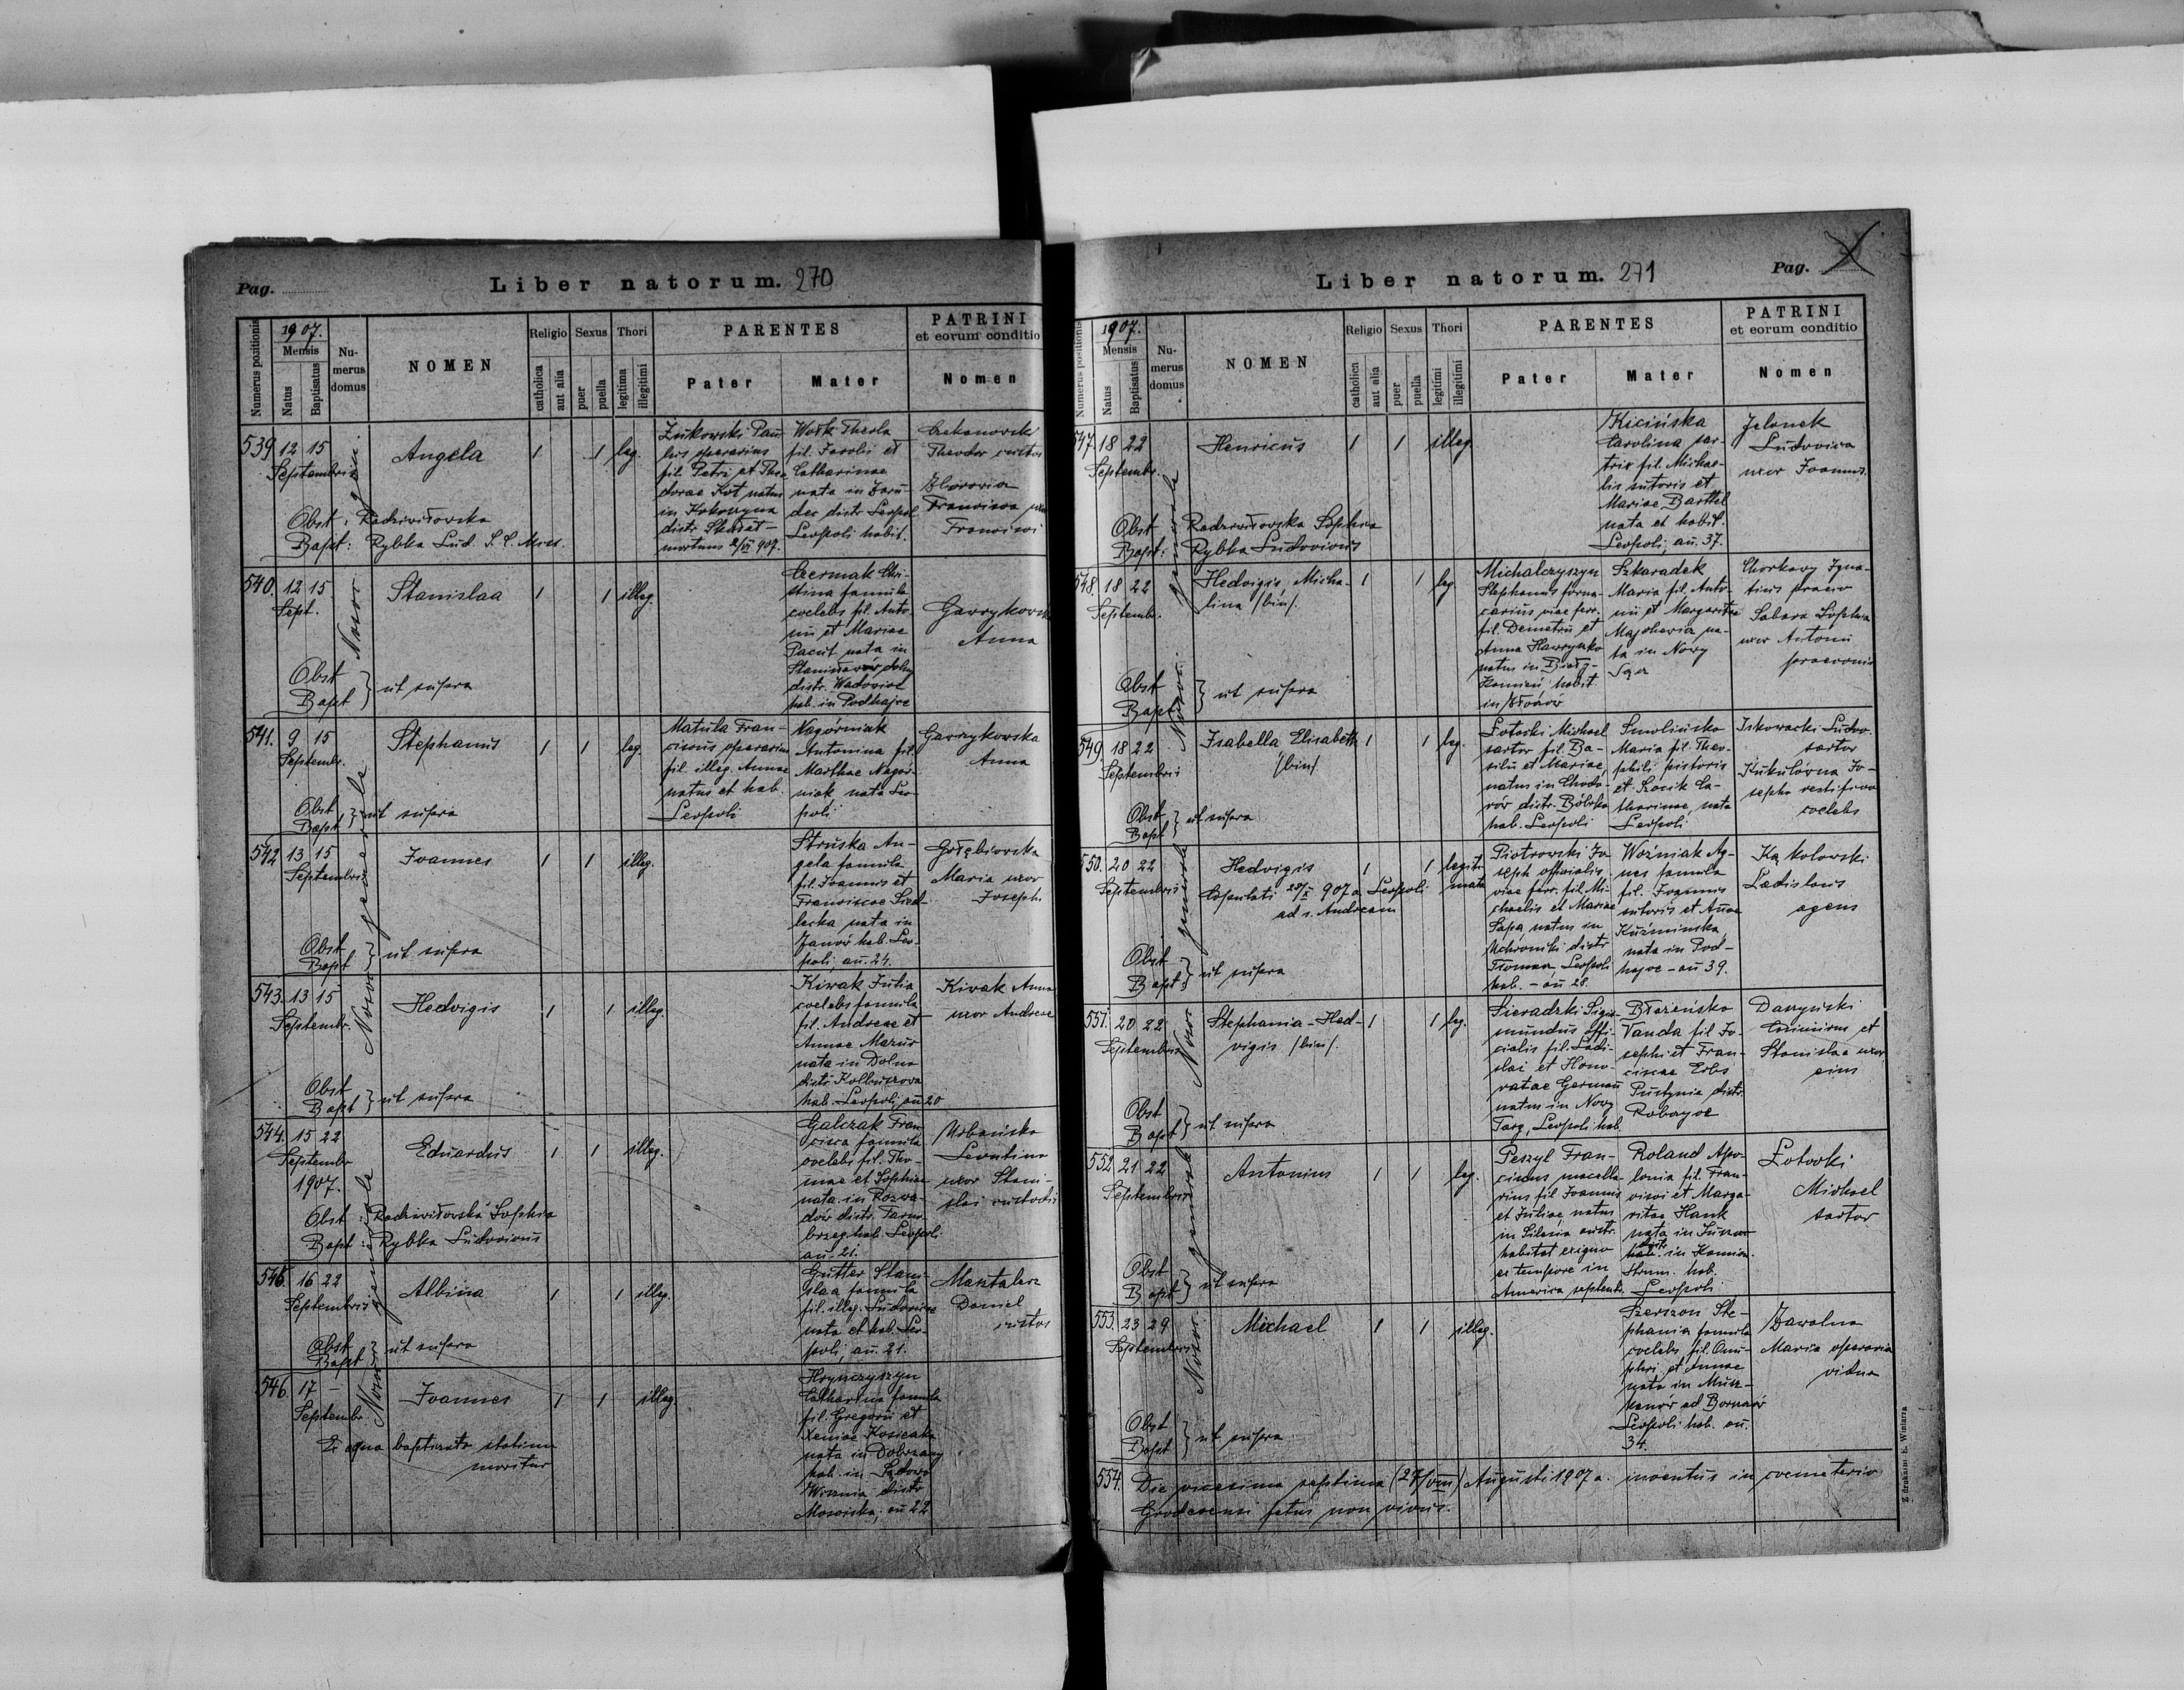 Pag.
Liber natorum. 270
Numerus positionis
1907.
Mensis
Natus
Baptisatus
Nu-
merus
domus
NOMEN
Religio
catholica
aut alia
Sexus
puer
puella
Thori
legitima
illegitimi
PARENTES
Pater
Mater
PATRINI
et eorum conditio
Nomen
539 12 15
Septembris
Angela
1 1 leg.
Żukowski Pau-
lus operarius
fil. Petri et Theo
dorae Kot natus
in
distr. Skałat -
mortuus 2/VI 907.
Wołk Thecla
fil. Jacobi et
Catharinae
nata in
distr. Leopol
Leopoli habit.
Theodor custos
Francisca uxor
Francisci
Obst: Radziwiłowska
Bapt: Rybka Lud. S. C. Miss.
Nosoc. generale
540. 12 15
Sept.
Stanislaa
1 1 illeg.
Czermak Chri-
stina famula
coelebs fil. Anto-
nii et Mariae
Pacut nata in
Stanisławów dolny
distr. Wadowice
hab. in Podhajce
Gawrykowska
Anna
Obst
Bapt } ut supra
541. 9 15
Septembr.
Stephanus
1 1 leg.
Matula Fran-
ciscus operarius
fil. illeg. Annae
natus et hab.
Leopoli
Nagórniak
Antonina fil.
Marthae Nagór-
niak nata Leo-
poli
Gawrykowska
Anna
Obst
Bapt } ut supra
542 13 15
Septembris
Joannes
1 1 illeg.
Struska An-
gela famula
fil. Joannis et
Franciscae Sied-
lecka nata in
Janów hab. Leo-
poli, an. 24.
Gołębiowska
Maria uxor
Josephi
Obst
Bapt } ut supra
Nosoc. generale
543. 13 15
Septembr.
Hedvigis
1 1 illeg.
Kiwak Julia
coelebs famula
fil. Andreae et
Annae Mazur
nata in Dolna
distr. Kolbuszowa
hab. Leopoli, an 20
Kiwak Anna
uxor Andreae
Obst
Bapt } ut supra
544. 15 22
Septembr
1907.
Eduardus
1 1 illeg.
Galczak Fran-
cisca famula
coelebs fil. Tho-
mae et Sophiae
nata in Rozwa-
dów distr. Tarno-
brzeg hab. Leopoli
an. 21.
Urbańska
Leontina
uxor Stani-
slai custodis
Obst: Radziwiłowska Sophia
Bapt: Rybka Ludovicus
545. 16 22
Septembris
Albina
1 1 illeg.
Gutter Stani-
slaa famula
fil. illeg. Ludovicae
nata et hab. Leo-
poli, an. 21.
Masztalerz
Daniel
custos
Obst
Bapt } ut supra
Nosoc. generale
546. 17 -
Septembr.
Joannes
1 1 illeg.
Hrynczyszyn
Catharina famula
fil. Gregorii et
Xeniae
nata in Dobrzany
hab. in Sądowa
Wisznia distr.
Mościska, an 22
Ex aqua baptizato statim
moritur
Liber natorum. 271
Pag.
Numerus positionis
1907.
Mensis
Natus
Baptisatus
Nu-
merus
domus
NOMEN
Religio
catholica
aut alia
Sexus
puer
puella
Thori
legitimi
illegitimi
PARENTES
Pater
Mater
PATRINI
et eorum conditio
Nomen
547. 18 22
Septembr.
Henricus
1 1 illeg.
Kicińska
Carolina sar-
trix fil. Michae-
lis sutoris et
Mariae Barthel
nata et habit.
Leopoli, an. 37.
Jelonek
Ludovica
uxor Joannis.
Obst Radziwiłowska Sophia
Bapt: Rybka Ludovicus
548. 18 22
Septembr.
Hedvigis Micha-
lina /bin/.
1 1 leg
Michalczyszyn
Stephanus forna-
carius viae ferr.
fil. Demetrii et
Anna Hawryszko
natus in Biały-
Kamień habit
in Złoczów
Szkaradek
Maria fil. Anto-
nii et Margaritae
na-
ta in Nowy
Sącz
Chorkawy Igna-
tius praeco
Sabara Sophia
uxor Antonii
praeconis
Obst
Bapt } ut supra
Nosoc. generale
549. 18 22
Septembris
Isabella Elisabeth
/bin/
1 1 leg.
Łotocki Michael
sartor fil. Ba-
silii et Mariae,
natus in Chodo-
rów distr. Bóbrka
hab. Leopoli
Smolicicka
Maria fil. Theo-
phili pistoris
et Szocik Ca-
tharinae, nata
Leopoli
Iskowacki Ludov.
sartor
Kukulówna Jo-
sepha
coelebs
Obst
Bapt } ut supra
550. 20 22
Septembris
Hedvigis
1 1 legiti
mata
Copulati 23/X 907 a Leopoli
ad s. Andream
Piotrowski Jo
seph officialis
viae ferr. fil. Mi-
chaelis et Mariae
Sapa, natus in
distr.
Tłomacz, Leopoli
hab. - an 28.
Woźniak Ag-
nes famula
fil. Joannis
sutoris et Annae
Kuźmińska,
nata in Pod-
hajce - an 39.
Kąkolowski
Ladislaus
agens
Obst
Bapt } ut supra
Nosoc. generale
551. 20 22
Septembris
Stephania-Hed-
vigis /bin/.
1 1 leg.
Sieradzki Sigis-
mundus offi-
cialis fil. Ladi-
slai et Hono-
ratae German
natus in Nowy
Targ, Leopoli hab.
Błażeńska
Vanda fil. Jo-
sephi et Fran-
ciscae Erbs
Pustynia distr.
Ropczyce
Daszyński
Casimirus et
Stanislaa uxor
eius
Obst
Bapt } ut supra
552 21 22
Septembris
Antonius
1 1 leg.
Peszyl Fran-
ciscus macella-
rius fil. Joannis
et Juliae, natus
in Silesia austr.
habitat exiguo
ex tempore in
America septentr.
Roland Apo-
lonia fil. Fran-
cisci et Marga-
ritae Hank
nata in
distr. in Kamion.
Strum. hab.
Leopoli
Łotocki
Michael
sartor
Obst
Bapt } ut supra
Nosoc. generale
553. 23 29
Septembris
Michael
1 1 illeg.
Szerszon Ste-
phania famula
coelebs, fil. Onu-
phri et Annae
nata in
ad
Leopoli hab. an.
34.
Zawalna
Maria operaria
vidua
Obst
Bapt } ut supra
554. Die vicesima septima (27/VIII) Augusti 1907 a. inventus in coemeterio
Grodecensi fetus non vivus.
Z drukarni E. Winiarza